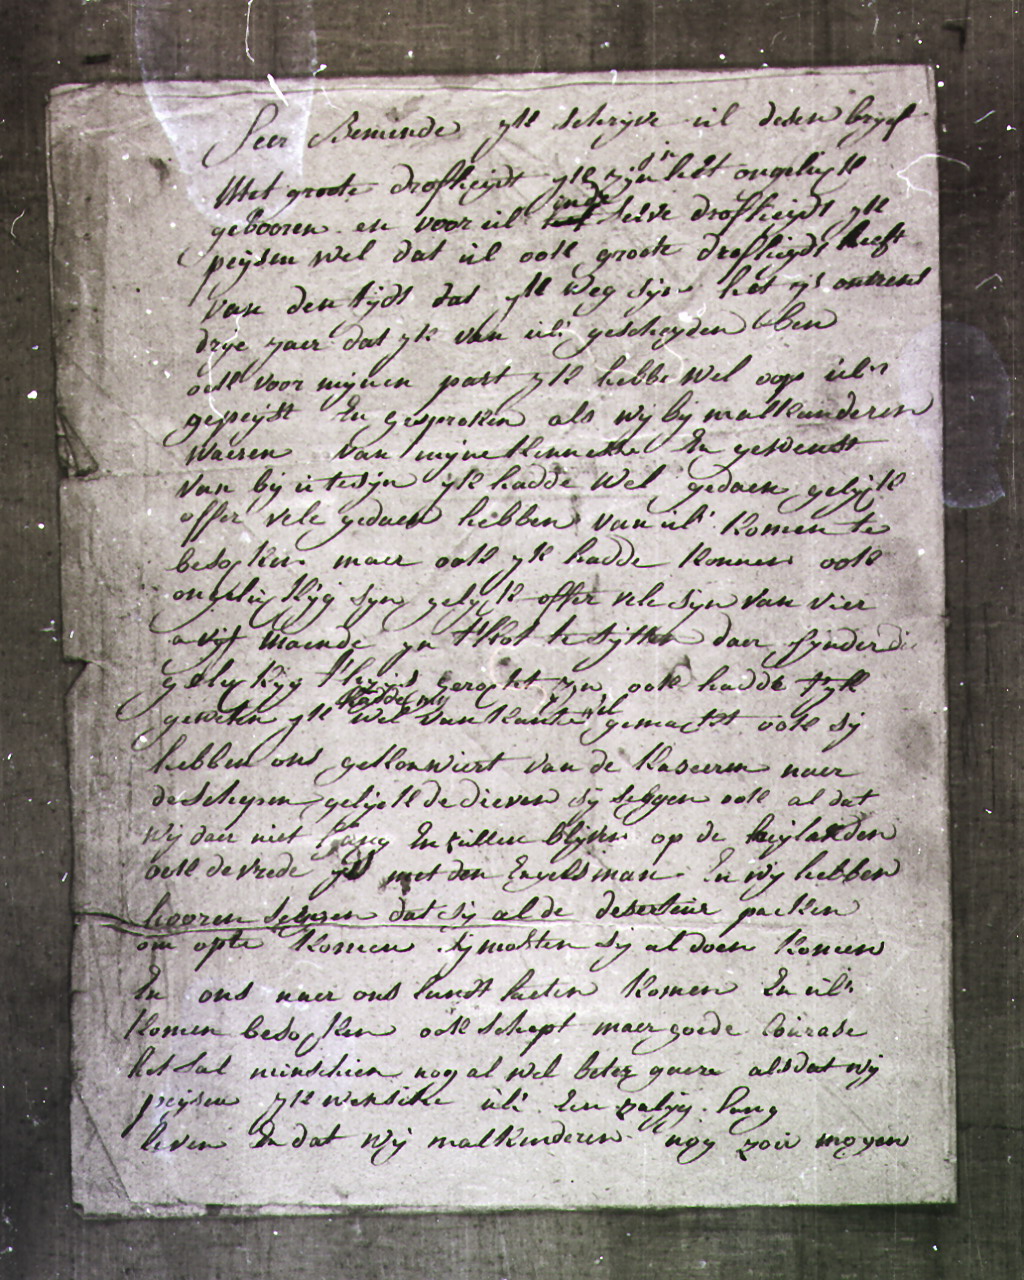 Seer Beminde yk schryve ul desen bryef
Met groote drofheijdt yk zyn in het ongelyk
gebooren en voor ul in de selve drofheijdt yk
peijsen wel dat ul ook groote drofheijdt heeft
van den tijdt dat yk weg syn het ys ontrent
drye jaer dat yk van uls gescheyden ben
ook voor mynen part yk hebbe wel op uls
gepeijst En gesproken als wij by malkanderen
waeren van myne kennesse En gewenst
van bij u te syn yk hadde wel gedaen gelyk
offer vele gedaen hebben van uls komen te
besoeken maer ook yk hadde konnen ook
ongelukkyg syn gelyk offer vele syn van vier
a vijf maende yn t kot te sitten daer synder die
gelukkyg geraekt zyn ook hadde t yk
geweten yk hadde my wel van kante gemaekt ook sy
hebben ons gekonwiert van de kaseerne naer
de schepen gelyck de dieven sy seggen ook al dat
wij daer niet lang En zullen blijven op de eylanden
ook de vrede ys met den Engelsman En wy hebben
hooren seggen dat sy al de deserteurs packen
om opte komen sy mosten sy al doen komen
En ons naer ons landt laeten komen En uls
komen besoeken ook schept maer goede Courase
het sal minschien nog al wel beter gaere als dat wij
peijsen yk wensche uls Een zalyg lang
leven En dat wij malkanderen nog zoo mogen